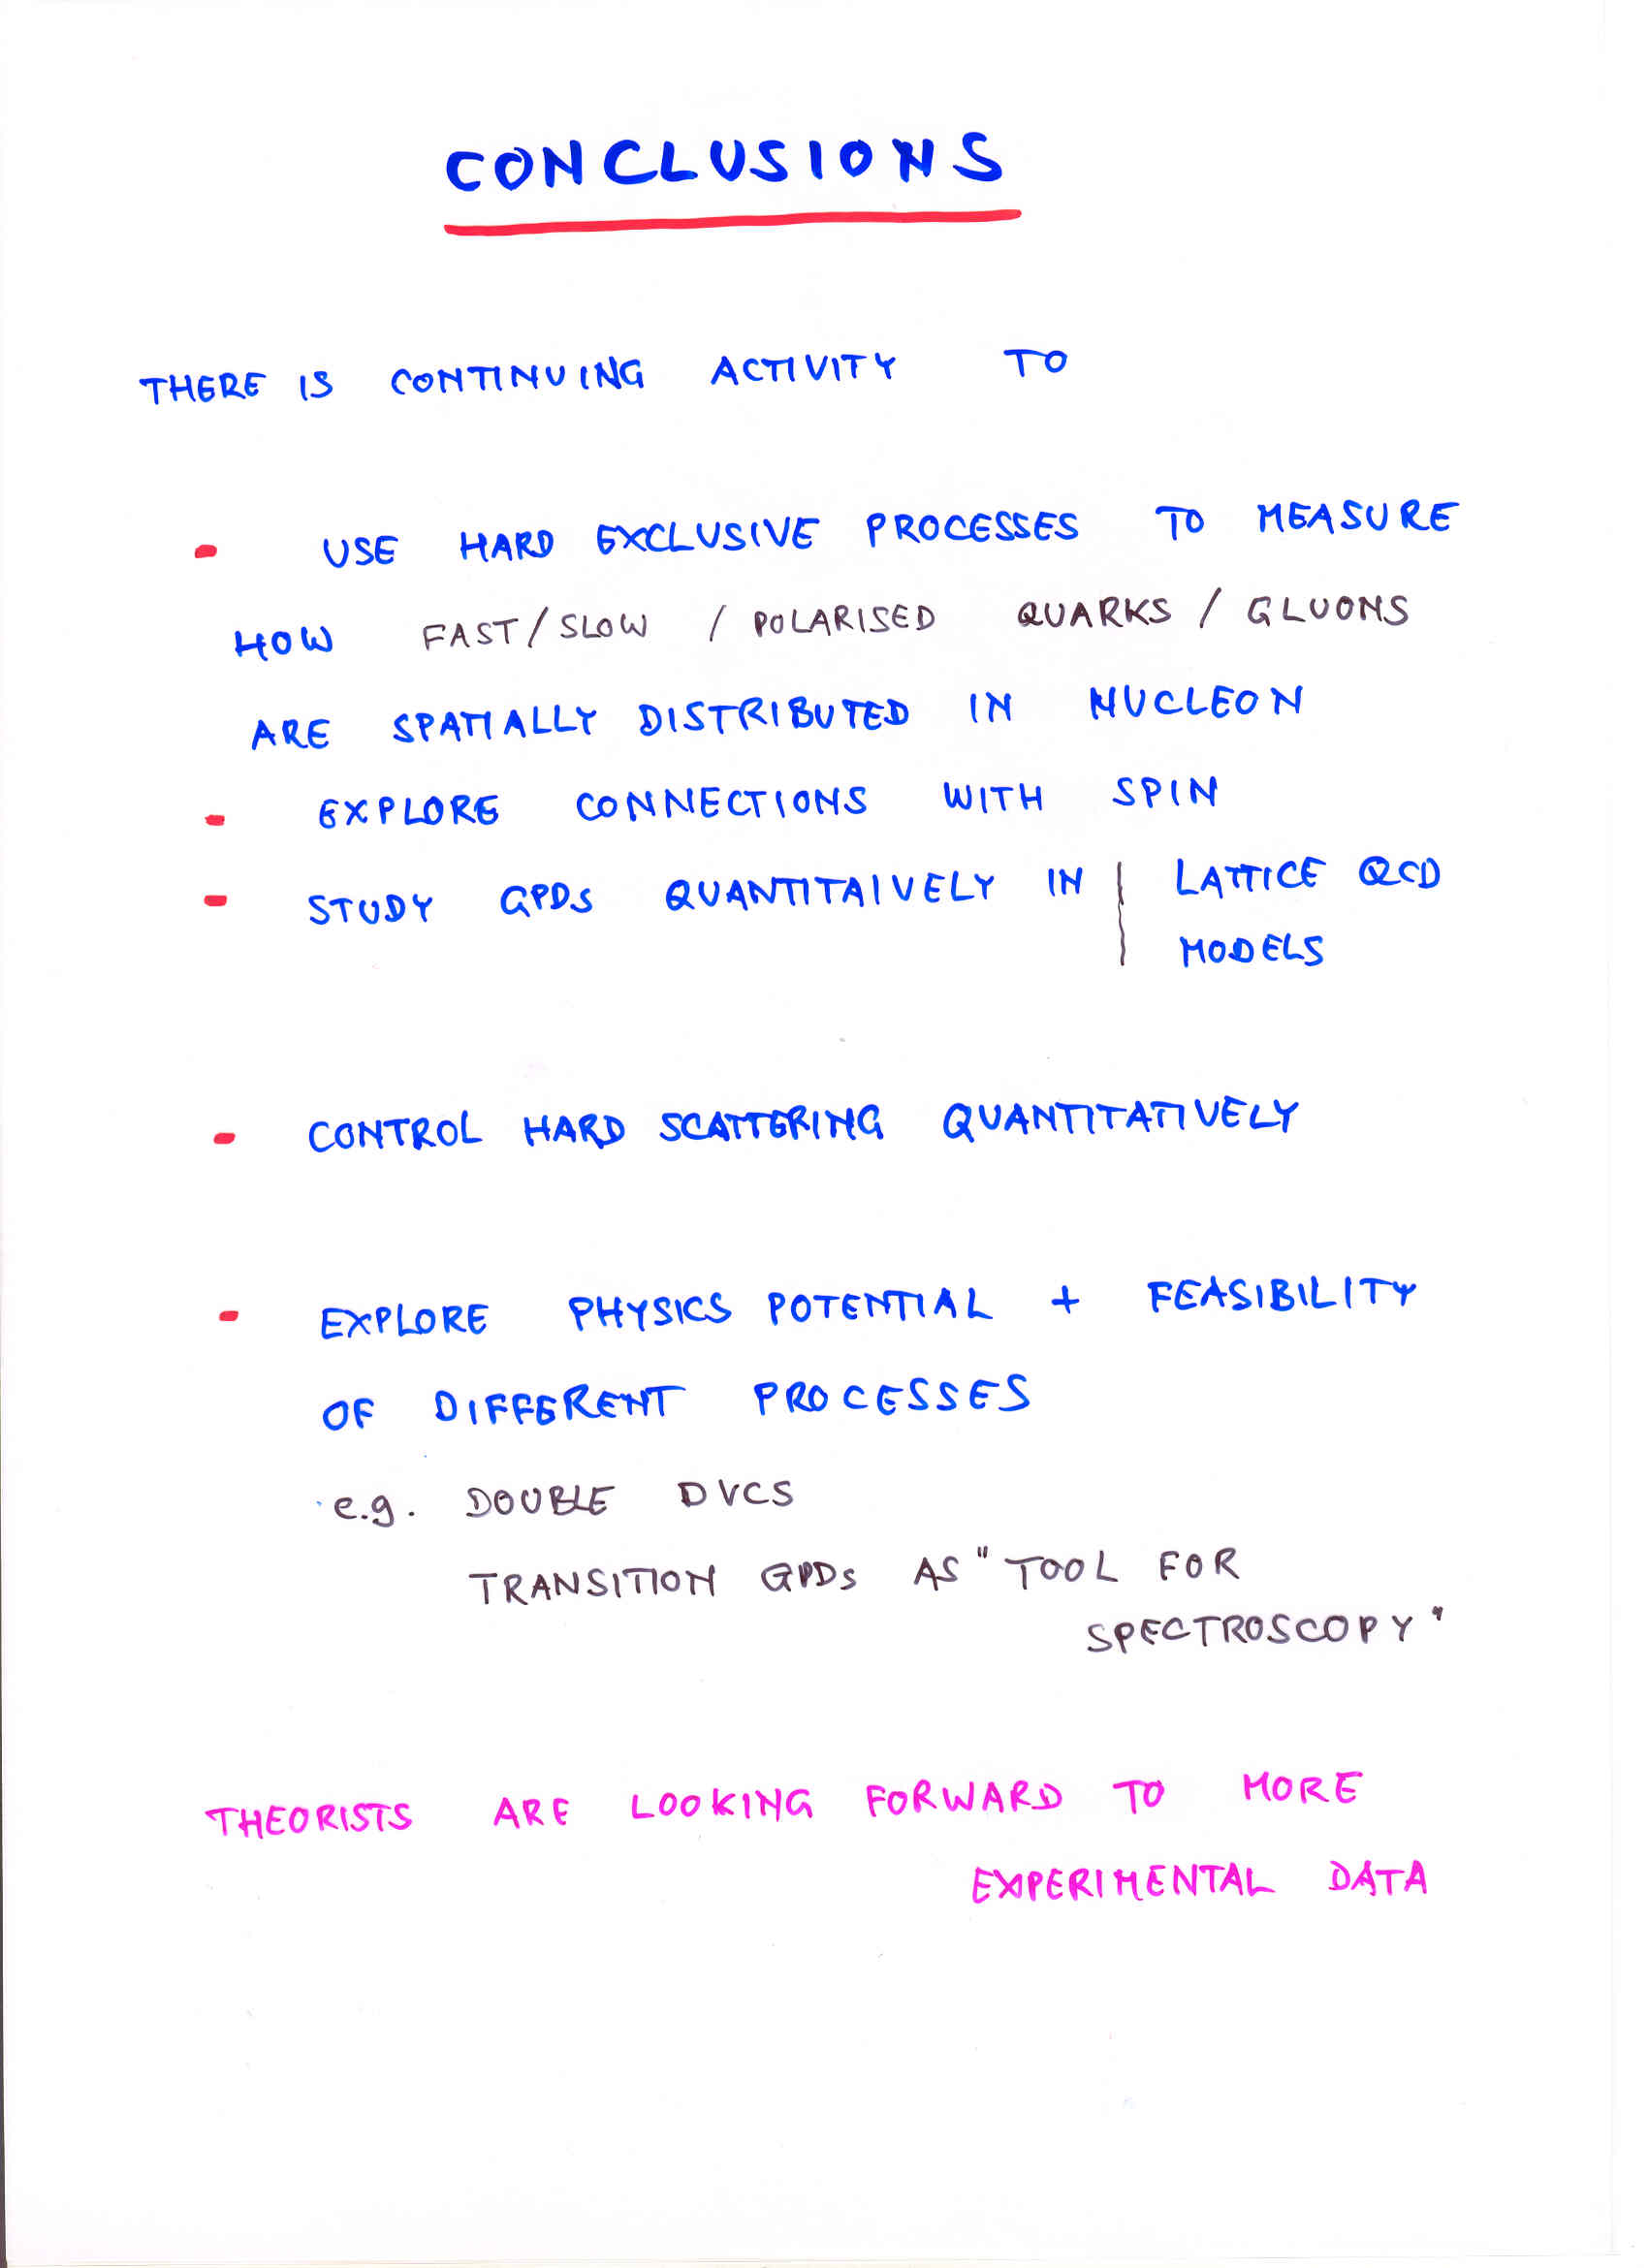 CONCLUSIONS
THERE IS CONTINUING ACTIVITY TO
- USE HARD EXCLUSIVE PROCESSES TO MEASURE
HOW FAST/SLOW / POLARISED QUARKS / GLUONS
ARE SPATIALLY DISTRIBUTED IN NUCLEON
- EXPLORE CONNECTIONS WITH SPIN
- STUDY GPDS QUANTITAIVELY IN | LATTICE QCD
MODELS
- CONTROL HARD SCATTERING QUANTITATIVELY
- EXPLORE PHYSICS POTENTIAL + FEASIBILITY
OF DIFFERENT PROCESSES
e.g. DOUBLE DVCS
TRANSITION GPDs AS "TOOL FOR
SPECTROSCOPY"
THEORISTS ARE LOOKING FORWARD TO MORE
EXPERIMENTAL DATA